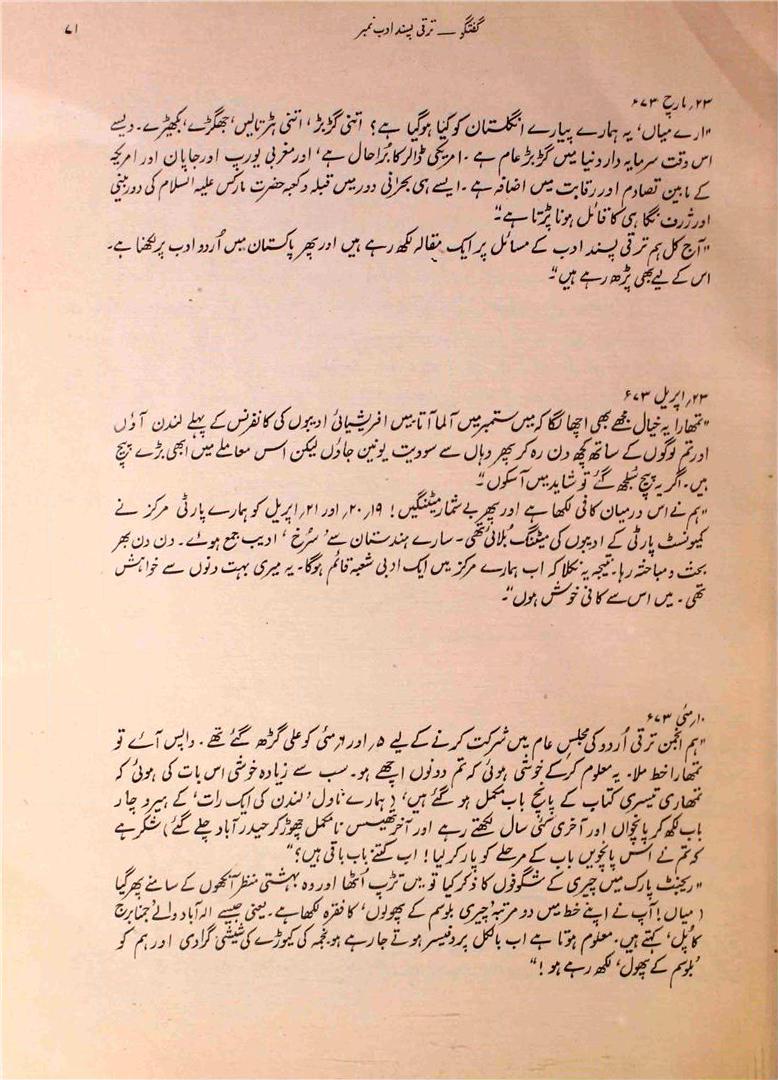 گفتگو — ترقی پسند ادب نمبر
۷۱
۲۳؍ مارچ ۷۳ء
"ارے میاں، یہ ہمارے پیارے انگلستان کو کیا ہوگیا ہے؟ اتنی گڑبڑ، اتنی ہڑتالیں، جھگڑے، بکھیڑے۔ ویسے
اس وقت سرمایہ دار دنیا میں گڑبڑ عام ہے۔ امریکی ڈالر کا بُرا حال ہے، اور مغربی یورپ اور جاپان اور امریکہ
کے مابین تصادم اور رقابت میں اضافہ ہے۔ ایسے ہی بحرانی دور میں قبلہ و کعبہ حضرت مارکس علیہ السلام کی دور بینی
اور ژرف نگاہی کا قائل ہونا پڑتا ہے۔"
"آج کل ہم ترقی پسند ادب کے مسائل پر ایک مقالہ لکھ رہے ہیں اور پھر پاکستان میں اُردو ادب پر لکھنا ہے۔
اس کے لیے بھی پڑھ رہے ہیں۔"
۲۳؍ اپریل ۷۳ء
"تمھارا یہ خیال مجھے بھی اچھا لگا کہ میں ستمبر میں آلما آتا میں افریشیائی ادیبوں کی کانفرنس کے پہلے لندن آؤں
اور تم لوگوں کے ساتھ کچھ دن رہ کر پھر وہاں سے سوویت یونین جاؤں لیکن اس معاملے میں ابھی بڑے پیچ
ہیں۔ اگر یہ پیچ سُلجھ گئے تو شاید میں آسکوں۔"
"ہم نے اس درمیان کافی لکھا ہے اور پھر بے شمار میٹنگیں! ۱۹، ۲۰، اور ۲۱؍ اپریل کو ہمارے پارٹی مرکز نے
کمیونسٹ پارٹی کے ادیبوں کی میٹنگ بُلائی تھی۔ سارے ہندستان سے 'سُرخ' ادیب جمع ہوئے۔ دن دن بھر
بحث و مباحثہ رہا۔ نتیجہ یہ نکلا کہ اب ہمارے مرکز میں ایک ادبی شعبہ قائم ہوگا۔ یہ میری بہت دنوں سے خواہش
تھی۔ میں اس سے کافی خوش ہوں۔"
۱۰؍ مئی ۷۳ء
"ہم انجمن ترقی اُردو کی مجلسِ عام میں شرکت کرنے کے لیے ۵، اور ۶؍ مئی کو علی گڑھ گئے تھے۔ واپس آئے تو
تمھارا خط ملا۔ یہ معلوم کرکے خوشی ہوئی کہ تم دونوں اچھے ہو۔ سب سے زیادہ خوشی اس بات کی ہوئی کہ
تمھاری تیسری کتاب کے پانچ باب مکمل ہو گئے ہیں، (ہمارے ناول 'لندن کی ایک رات' کے ہیرو چار
باب لکھ کر پانچواں اور آخری کئی سال لکھتے رہے اور آخر تھیسس نامکمل چھوڑ کر حیدرآباد چلے گئے) شکر ہے
کہ تم نے اس پانچویں باب کے مرحلے کو پار کرلیا! اب کتنے باب باقی ہیں؟"
"ریجنٹ پارک میں چیری کے شگوفوں کا ذکر کیا تو میں تڑپ اُٹھا اور وہ بہشتی منظر آنکھوں کے سامنے پھر گیا
(میاں! آپ نے اپنے خط میں دو مرتبہ 'چیری بلوسم کے پھولوں' کا فقرہ لکھا ہے۔ یعنی جیسے الہ آباد والے 'جمنا برج
کا پُل' کہتے ہیں۔ معلوم ہوتا ہے اب بالکل پروفیسر ہوتے جارہے ہو۔ نجمہ کی کیوڑے کی شیشی گرادی اور ہم کو
'بلوسم کے پھول' لکھ رہے ہو!"